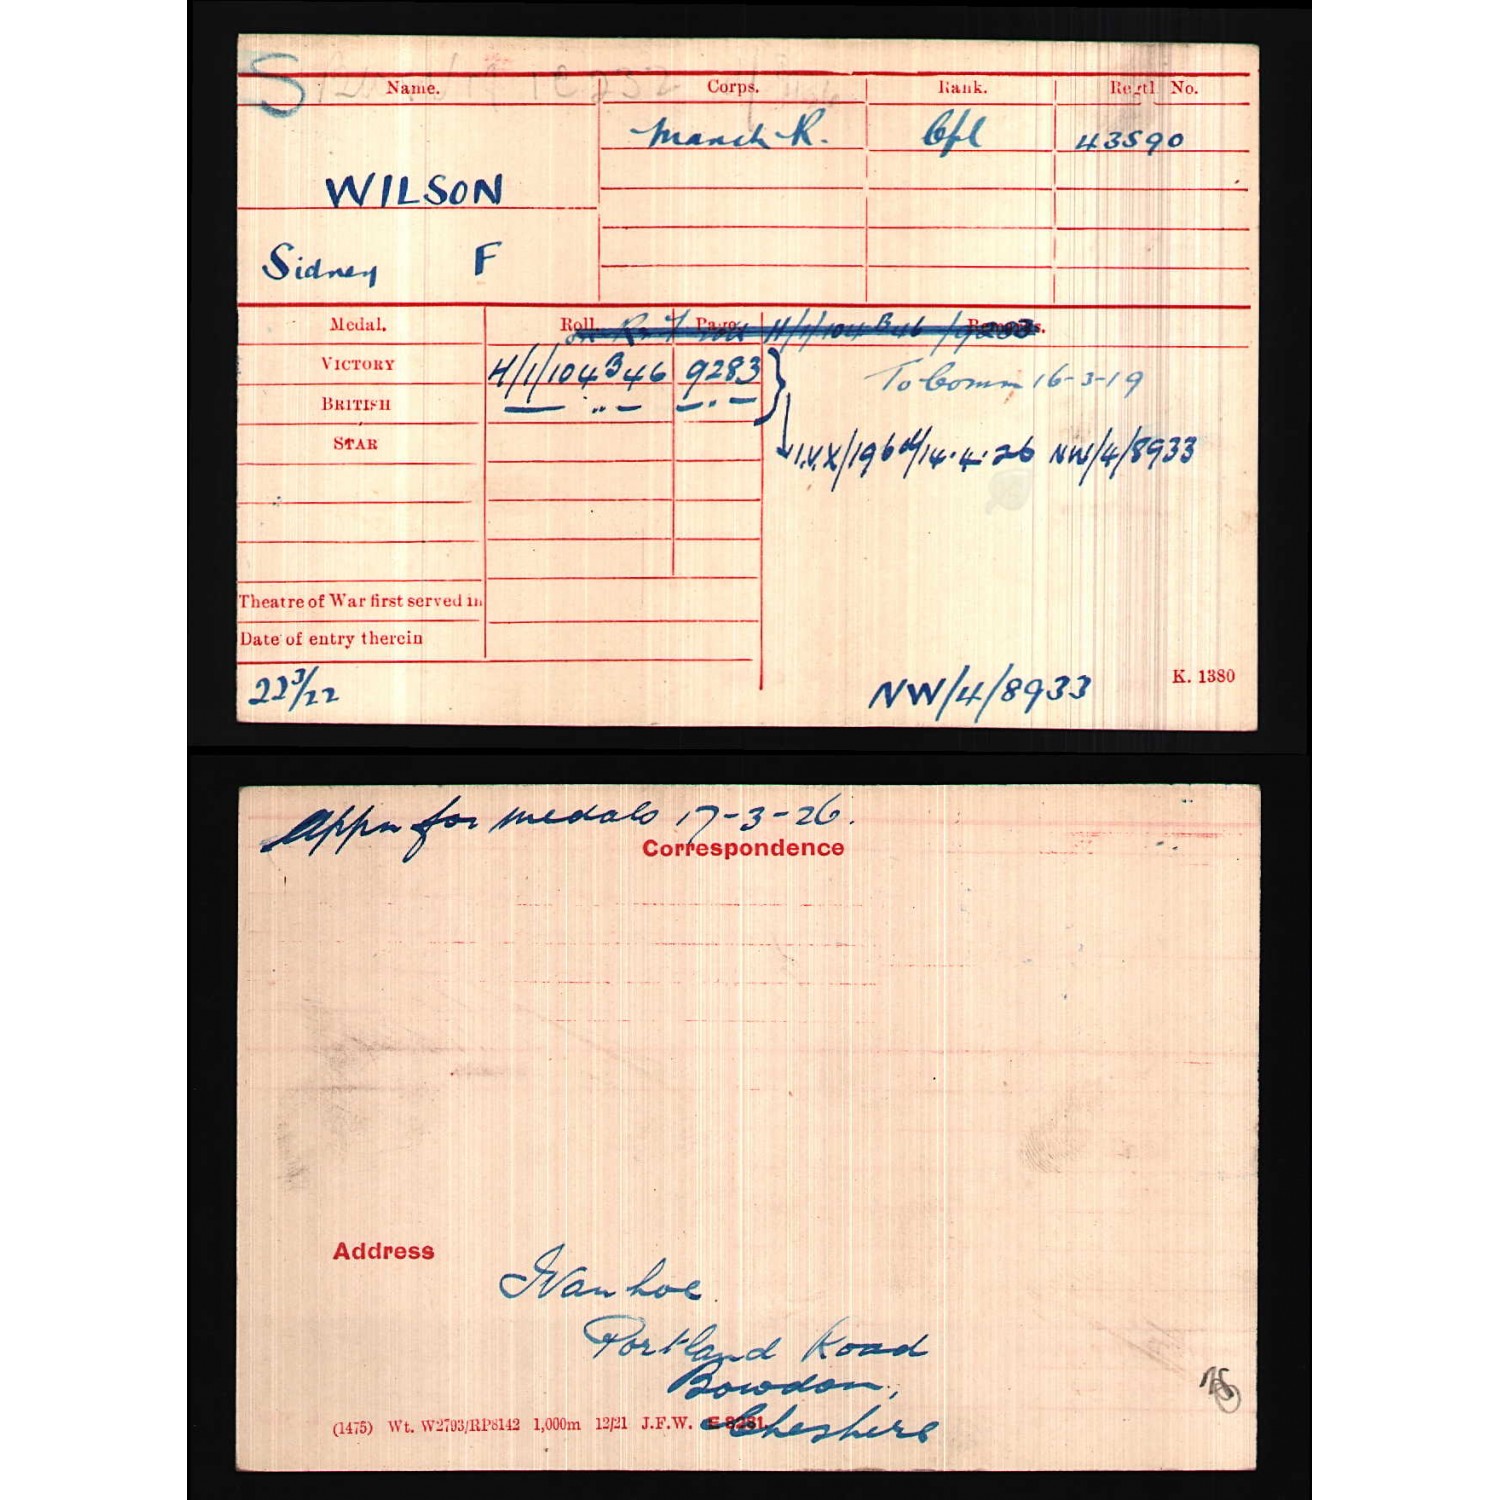 S
Name. Corps. Rank. Regtl No.
Manch R. Cpl 43590
WILSON
Sidney F
Medal. Roll. Page. Remarks.
H/1/104 B46 / 9283
VICTORY H/1/104 B46 9283 } To Comm 16-3-19
BRITISH — " — — " —
STAR I.V.X/196 /14.4.26 NW/4/8933
Theatre of War first served in
Date of entry therein
22 3/22 NW/4/8933 K. 1380
Appn for medals 17-3-26.
Correspondence
Address
Ivanhoe
Portland Road
Bowdon,
Cheshire
(1475) Wt. W2793/RP8142 1,000m 12/21 J.F.W. E 8281.